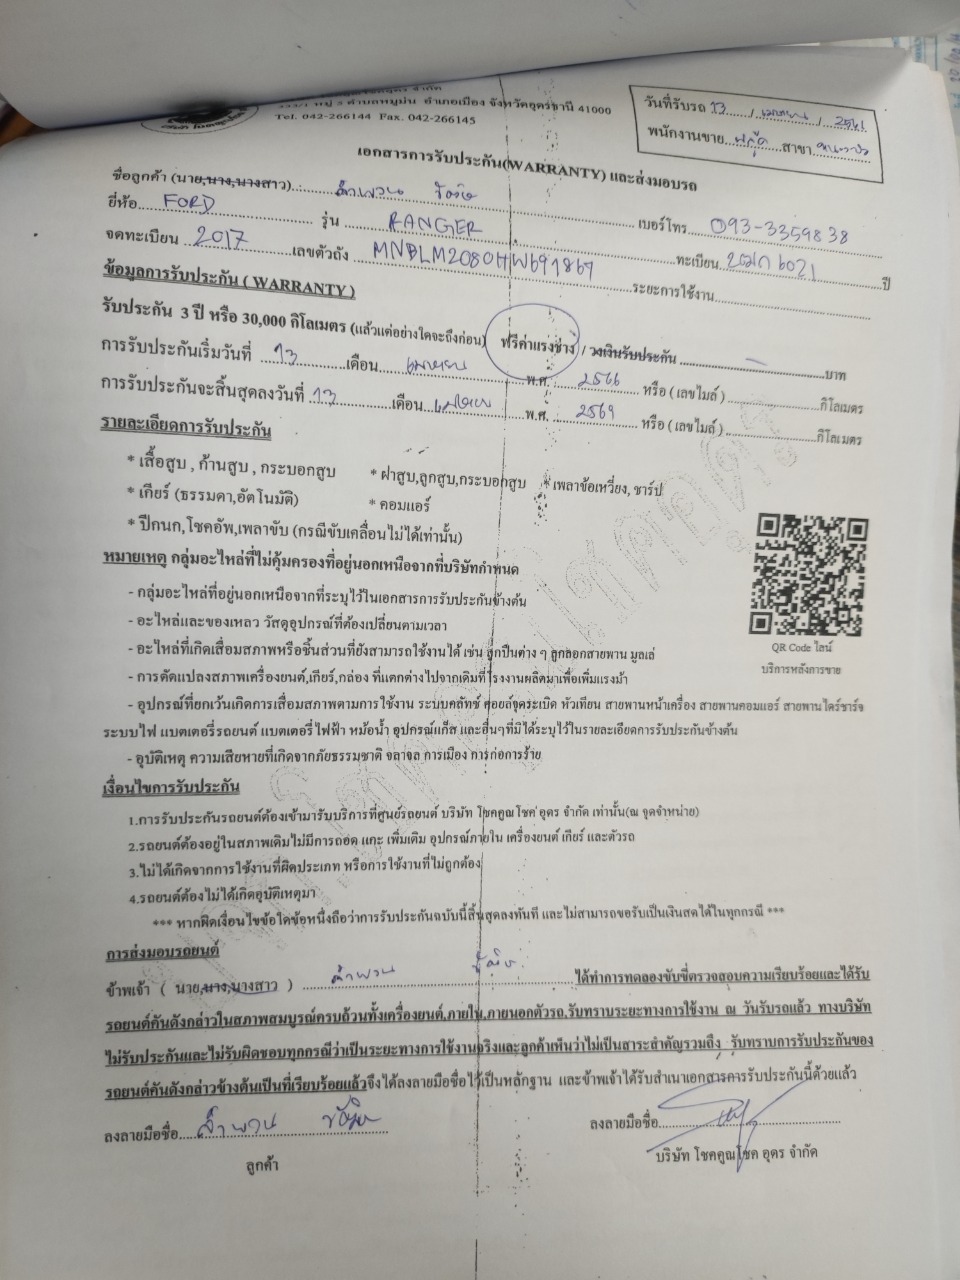 333/1 หมู่ 5 ตำบลหมูม่น อำเภอเมือง จังหวัดอุดรธานี 41000
Tel. 042-266144 Fax. 042-266145
วันที่รับรถ 13 / เมษายน / 2566
พนักงานขาย สาขา
เอกสารการรับประกัน(WARRANTY) และส่งมอบรถ
ชื่อลูกค้า (นาย,นาง,นางสาว) เบอร์โทร 093-3359838
ยี่ห้อ FORD รุ่น RANGER ทะเบียน 2ฒก 6021
จดทะเบียน 2017 เลขตัวถัง MNBLM2080HW691867 ระยะการใช้งาน ปี
ข้อมูลการรับประกัน ( WARRANTY )
รับประกัน 3 ปี หรือ 30,000 กิโลเมตร (แล้วแต่อย่างใดจะถึงก่อน) ฟรีค่าแรงช่าง / วงเงินรับประกัน บาท
การรับประกันเริ่มวันที่ 13 เดือน เมษายน พ.ศ. 2566 หรือ ( เลขไมล์ ) กิโลเมตร
การรับประกันจะสิ้นสุดลงวันที่ 13 เดือน เมษายน พ.ศ. 2569 หรือ ( เลขไมล์ ) กิโลเมตร
รายละเอียดการรับประกัน
* เสื้อสูบ , ก้านสูบ , กระบอกสูบ * ฝาสูบ,ลูกสูบ,กระบอกสูบ * เพลาข้อเหวี่ยง, ชาร์ป
* เกียร์ (ธรรมดา,อัตโนมัติ) * คอมแอร์
* ปีกนก,โชคอัพ,เพลาขับ (กรณีขับเคลื่อนไม่ได้เท่านั้น)
หมายเหตุ กลุ่มอะไหล่ที่ไม่คุ้มครองที่อยู่นอกเหนือจากที่บริษัทกำหนด
- กลุ่มอะไหล่ที่อยู่นอกเหนือจากที่ระบุไว้ในเอกสารการรับประกันข้างต้น
- อะไหล่และของเหลว วัสดุอุปกรณ์ที่ต้องเปลี่ยนตามเวลา
- อะไหล่ที่เกิดเสื่อมสภาพหรือชิ้นส่วนที่ยังสามารถใช้งานได้ เช่น ลูกปืนต่าง ๆ ลูกลอกสายพาน มูลเล่
- การดัดแปลงสภาพเครื่องยนต์,เกียร์,กล่อง ที่แตกต่างไปจากเดิมที่โรงงานผลิตมาเพื่อเพิ่มแรงม้า
- อุปกรณ์ที่ยกเว้นเกิดการเสื่อมสภาพตามการใช้งาน ระบบคลัทช์ คอยล์จุดระเบิด หัวเทียน สายพานหน้าเครื่อง สายพานคอมแอร์ สายพานไดร์ชาร์จ
ระบบไฟ แบตเตอรี่รถยนต์ แบตเตอรี่ไฟฟ้า หม้อน้ำ อุปกรณ์แก็ส และอื่นๆที่มิได้ระบุไว้ในรายละเอียดการรับประกันข้างต้น
- อุบัติเหตุ ความเสียหายที่เกิดจากภัยธรรมชาติ จลาจล การเมือง การก่อการร้าย
QR Code ไลน์
บริการหลังการขาย
เงื่อนไขการรับประกัน
1.การรับประกันรถยนต์ต้องเข้ามารับบริการที่ศูนย์รถยนต์ บริษัท โชคคูณโชค อุดร จำกัด เท่านั้น(ณ จุดจำหน่าย)
2.รถยนต์ต้องอยู่ในสภาพเดิมไม่มีการถอด แกะ เพิ่มเติม อุปกรณ์ภายใน เครื่องยนต์ เกียร์ และตัวรถ
3.ไม่ได้เกิดจากการใช้งานที่ผิดประเภท หรือการใช้งานที่ไม่ถูกต้อง
4.รถยนต์ต้องไม่ได้เกิดอุบัติเหตุมา
*** หากผิดเงื่อนไขข้อใดข้อหนึ่งถือว่าการรับประกันฉบับนี้สิ้นสุดลงทันที และไม่สามารถขอรับเป็นเงินสดได้ในทุกกรณี ***
การส่งมอบรถยนต์
ข้าพเจ้า ( นาย,นาง,นางสาว ) ได้ทำการทดลองขับขี่ตรวจสอบความเรียบร้อยและได้รับ
รถยนต์คันดังกล่าวในสภาพสมบูรณ์ครบถ้วนทั้งเครื่องยนต์,ภายใน,ภายนอกตัวรถ,รับทราบระยะทางการใช้งาน ณ วันรับรถแล้ว ทางบริษัท
ไม่รับประกันและไม่รับผิดชอบทุกกรณีว่าเป็นระยะทางการใช้งานจริงและลูกค้าเห็นว่าไม่เป็นสาระสำคัญรวมถึง รับทราบการรับประกันของ
รถยนต์คันดังกล่าวข้างต้นเป็นที่เรียบร้อยแล้วจึงได้ลงลายมือชื่อไว้เป็นหลักฐาน และข้าพเจ้าได้รับสำเนาเอกสารการรับประกันนี้ด้วยแล้ว
ลงลายมือชื่อ ลงลายมือชื่อ
ลูกค้า บริษัท โชคคูณโชค อุดร จำกัด